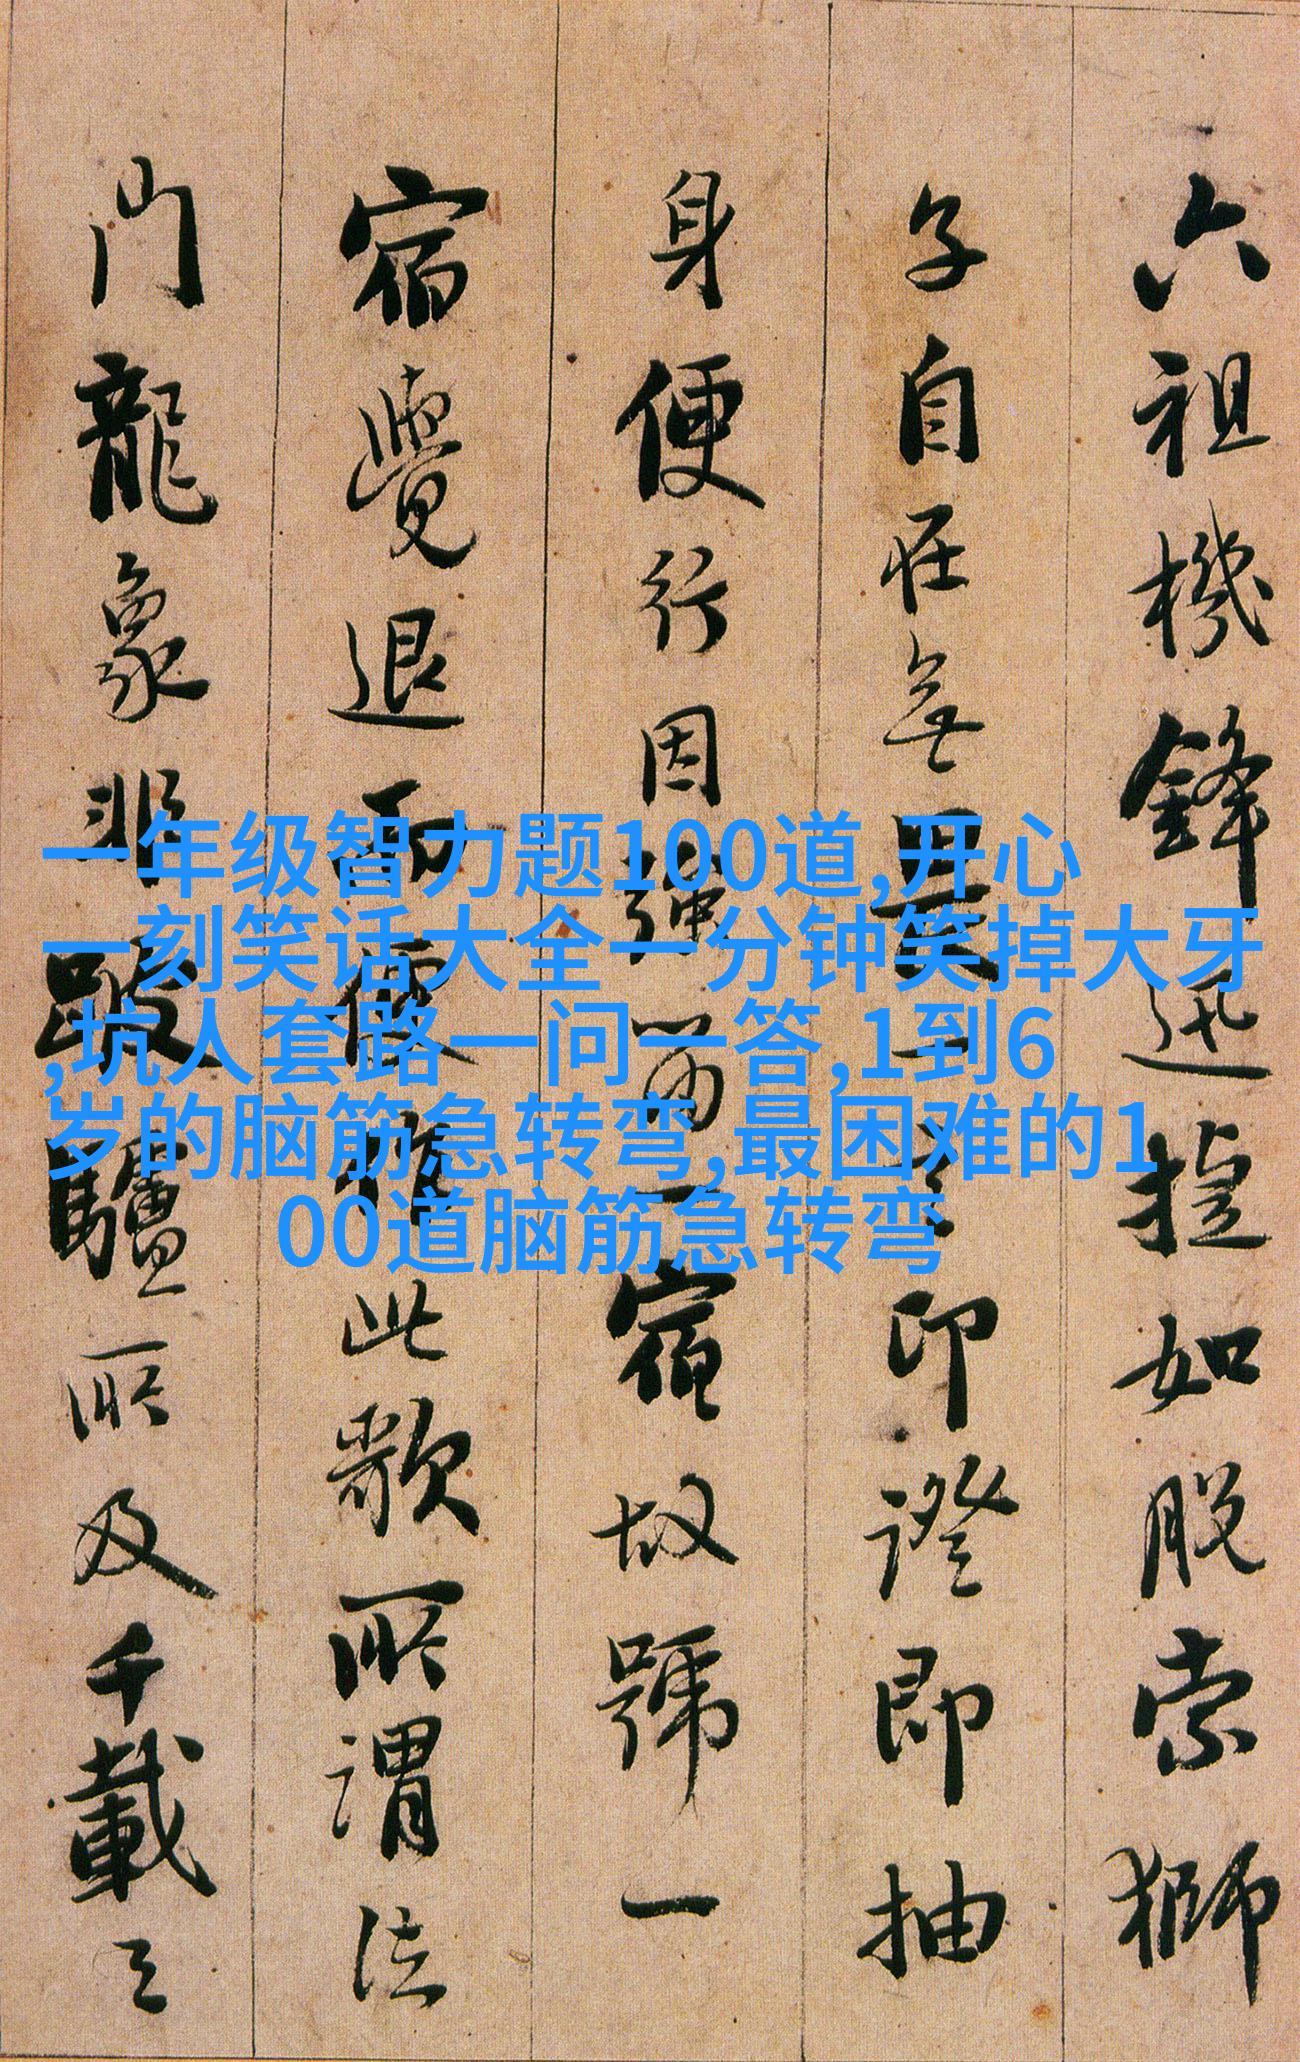 六祖機鋒迅捷如脫索獅
子自在無畏一言印證即抽
身便行因強留一宿故號一
宿覺退而此歌所謂法
門龍象非跛驢所及千載之
一年级智力题100道,开心
一刻笑话大全一分钟笑掉大牙
,坑人套路一问一答,1到6
岁的脑筋急转弯,最困难的1
00道脑筋急转弯